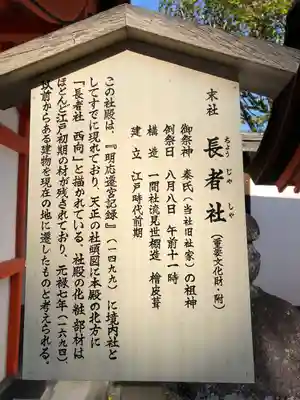 末社
長者社（重要文化財・附）
ちょうじゃしゃ
御祭神　秦氏（当社旧社家）の祖神
例祭日　八月八日　午前十一時
構造　一間社流見世棚造　檜皮葺
建立　江戸時代前期
この社殿は、『明応遷宮記録』（一四九九）に境内社と
してすでに現れており、天正の社頭図に本殿の北方に
「長者社　西向」と描かれている。社殿の化粧部材は
ほとんど江戸初期の材が残されており、元禄七年（一六九四）、
以前からある建物を現在の地に遷したものと考えられる。